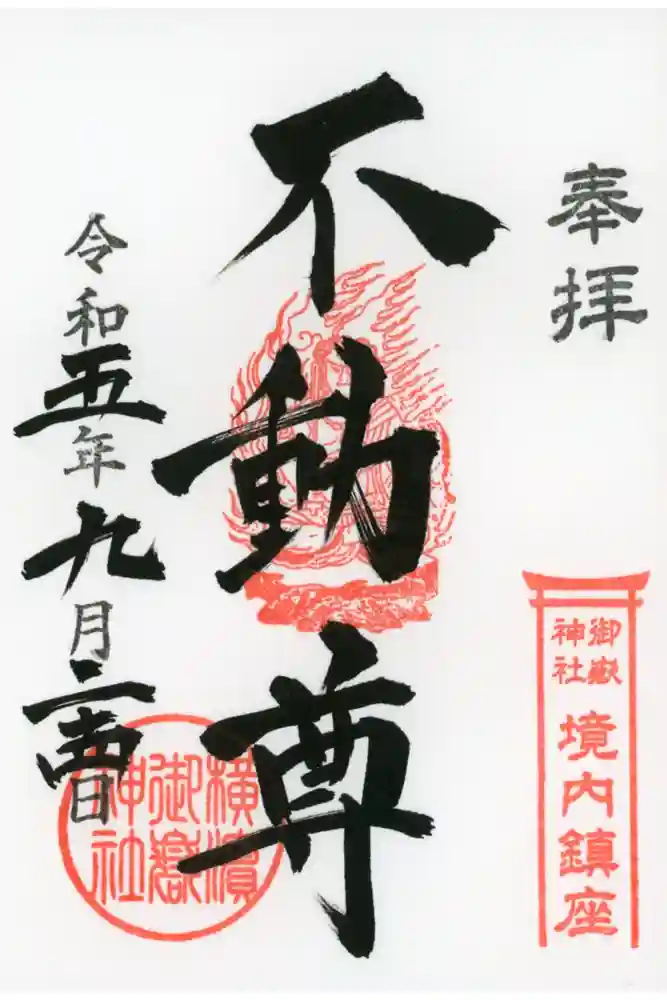 奉拝
御嶽
神社
境内鎮座
不動尊
横濱
御嶽
神社
令和五年九月二十四日